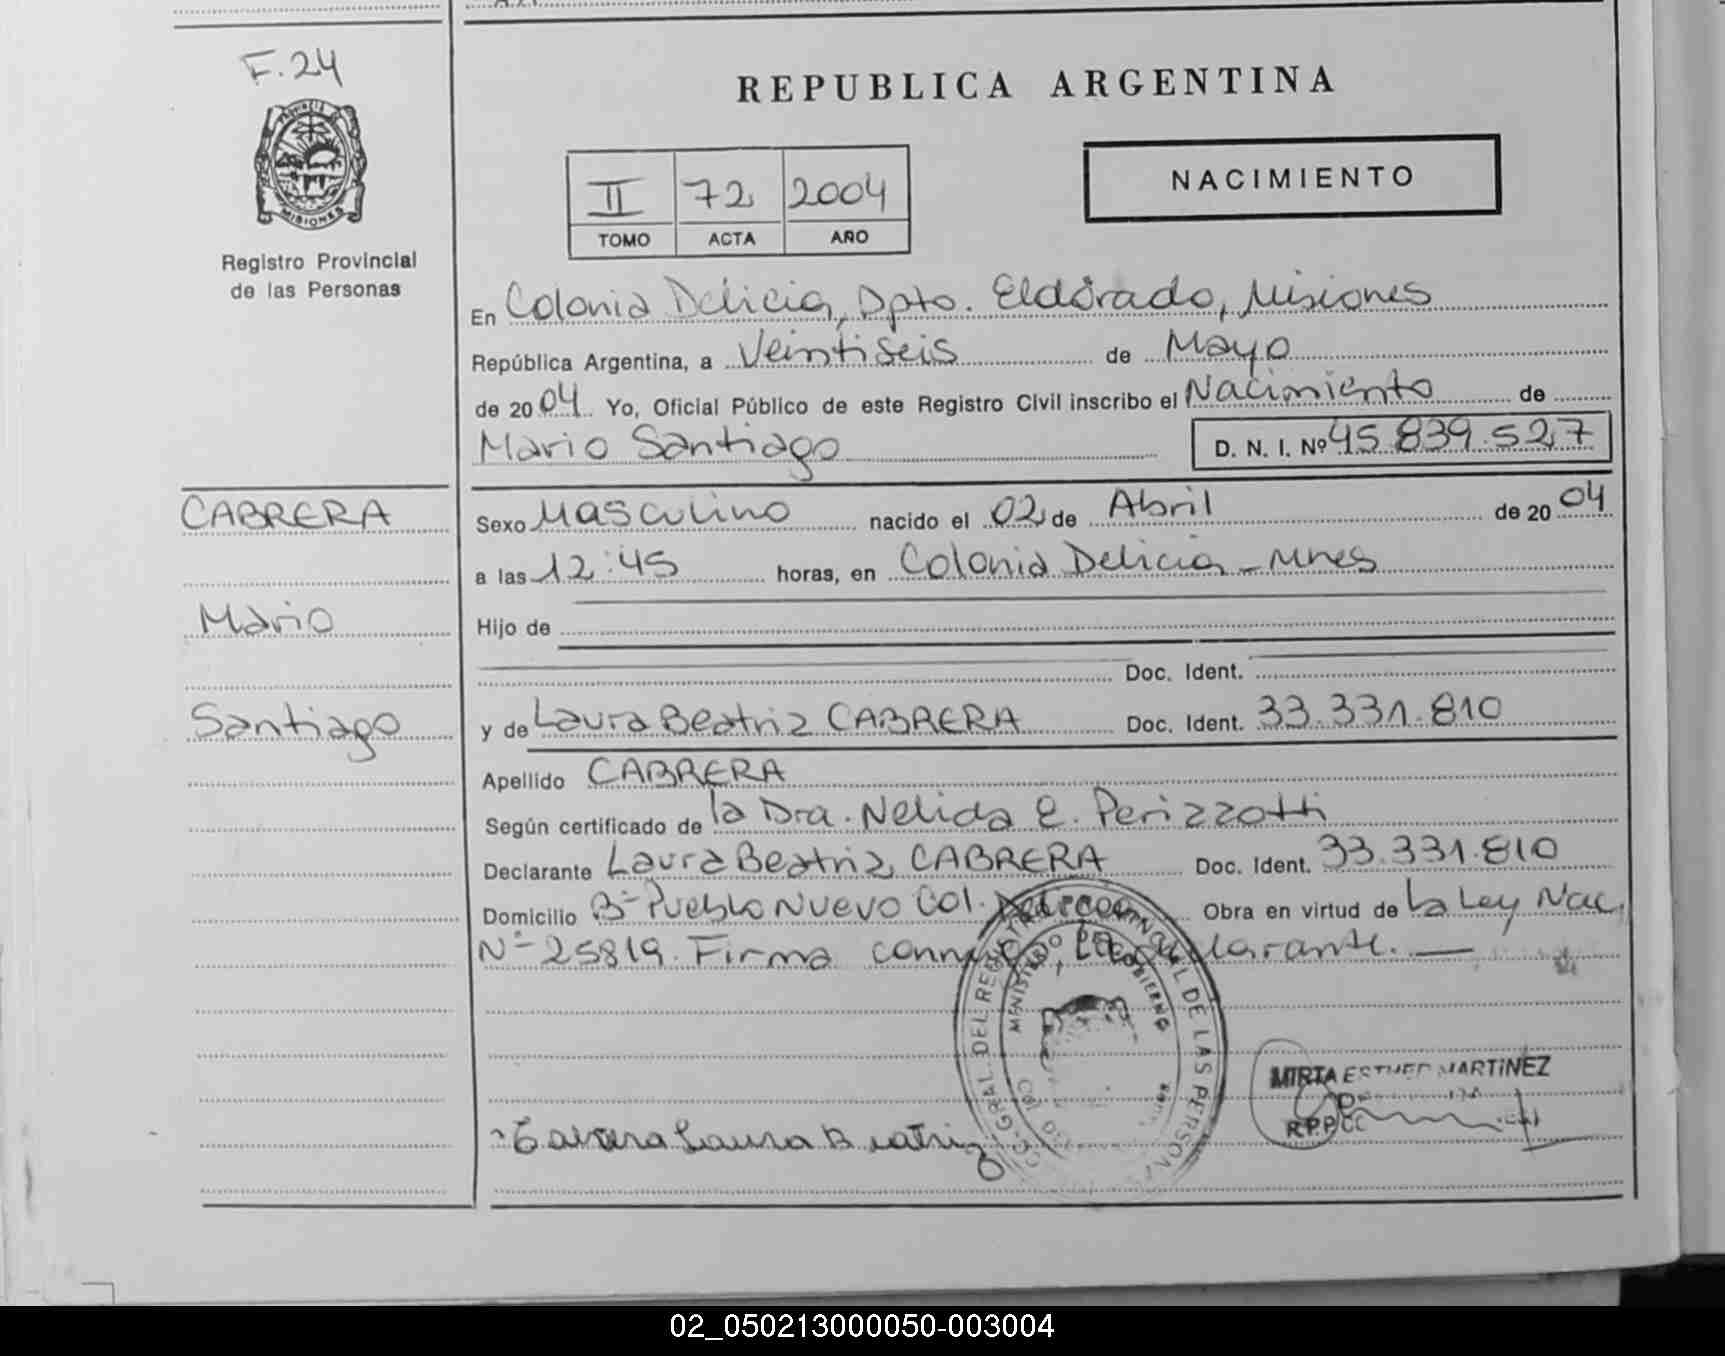 F.24
PROVINCIA
MISIONES
Registro Provincial
de las Personas
REPUBLICA ARGENTINA
II 72 2004
TOMO ACTA AÑO
NACIMIENTO
En Colonia Delicia, Dpto. Eldorado, Misiones
República Argentina, a Veintiseis de Mayo
de 2004 Yo, Oficial Público de este Registro Civil inscribo el Nacimiento de
Mario Santiago D. N. I. Nº 45.839.527
CABRERA
Mario
Santiago
Sexo Masculino nacido el 02 de Abril de 2004
a las 12:45 horas, en Colonia Delicia - Mnes
Hijo de
Doc. Ident.
y de Laura Beatriz CABRERA Doc. Ident. 33.331.810
Apellido CABRERA
Según certificado de la Dra. Nelida E. Perizzotti
Declarante Laura Beatriz CABRERA Doc. Ident. 33.331.810
Domicilio Bº Pueblo Nuevo Col. Obra en virtud de la Ley Nac.
Nº 25819. Firma la
GRAL. DEL DE LAS
MINISTERIO DE GOBIERNO
MIRTA ESTHER MARTINEZ
R.P.P.
Cabrera Laura Beatriz
02_050213000050-003004